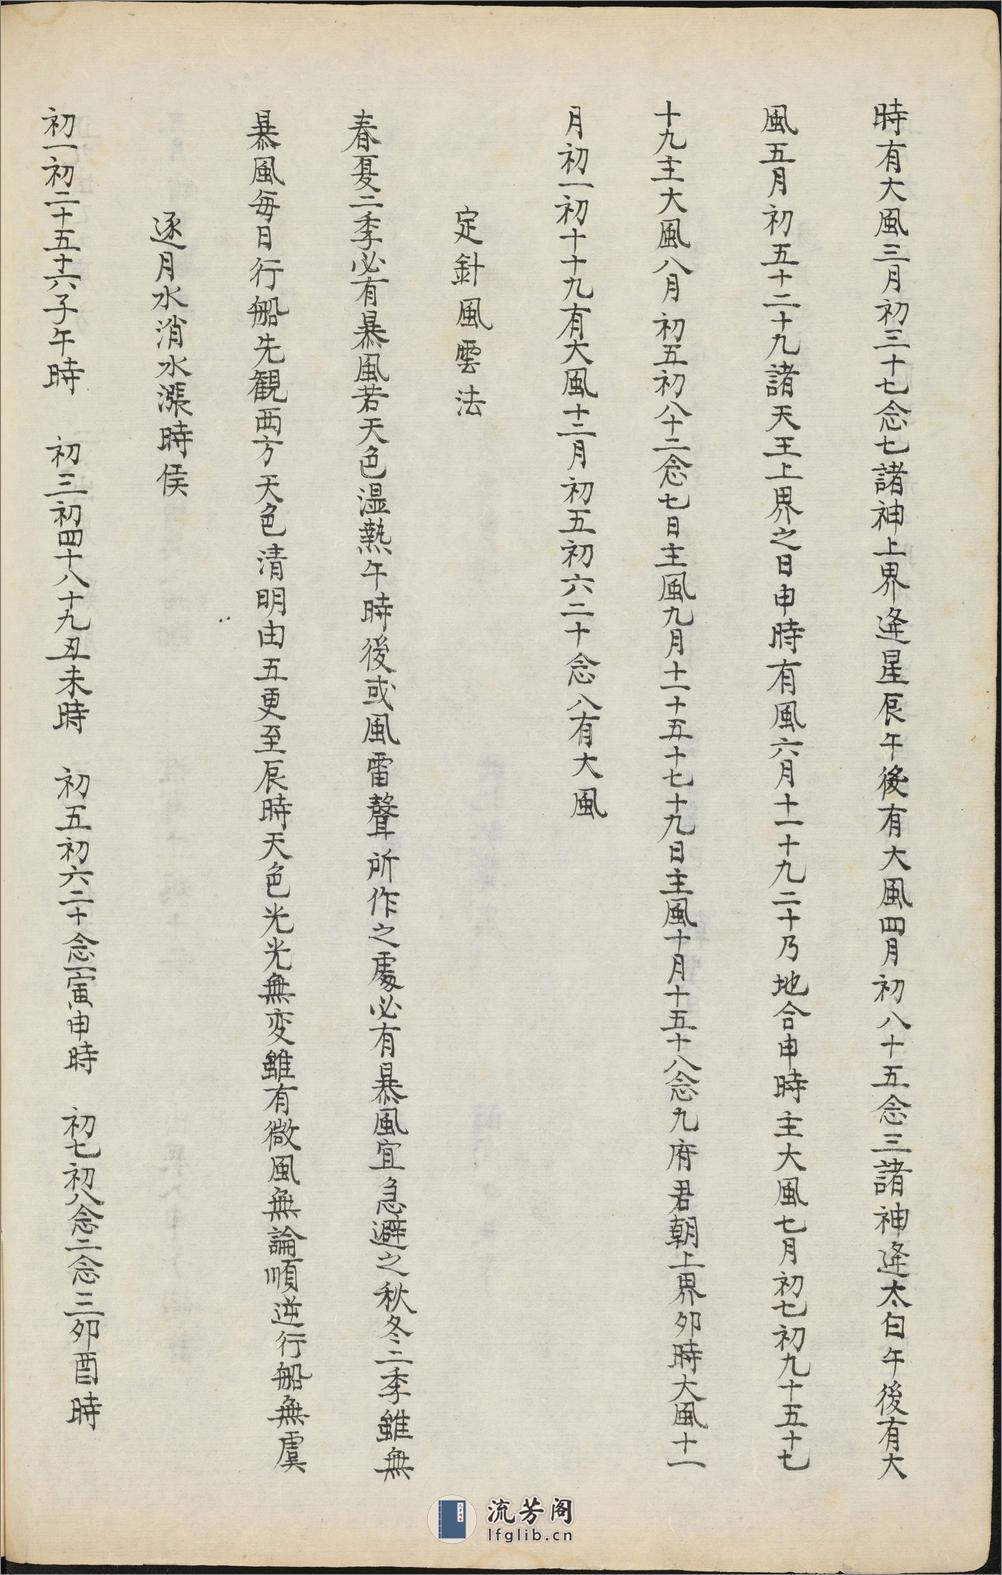 時有大風三月初三十七念七諸神上界逢星辰午後有大風四月初八十五念三諸神逢太白午後有大
風五月初五十二十九諸天王上界之日申時有風六月十一十九二十乃地合申時主大風七月初七初九十五十七
十九主大風八月初五初八十二念七日主風九月十一十五十七十九日主風十月十五十八念九府君朝上界卯時大風十一
月初一初十十九有大風十二月初五初六二十念八有大風
定針風雲法
春夏二季必有暴風若天色湿熱午時後或風雷聲所作之處必有暴風宜急避之秋冬二季雖無
暴風每日行船先観西方天色清明由五更至辰時天色光光無変雖有微風無論順逆行船無虞
逐月水消水漲時侯
初一初二十五十六子午時 初三初四十八十九丑未時 初五初六二十念一寅申時 初七初八念二念三卯酉時
流芳阁
lfglib.cn